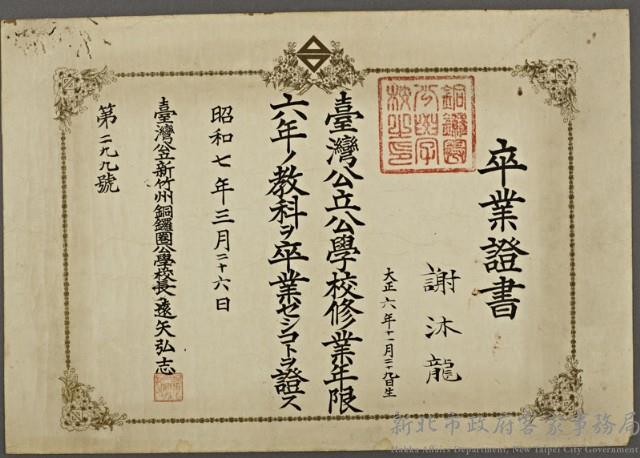 卒業證書
謝沐龍
大正六年十一月二十九日生
臺灣公立公學校修業年限
六年ノ教科ヲ卒業セシコトヲ證ス
昭和七年三月二十六日
臺灣公立新竹州銅鑼圈公學校長遠矢弘志
第二九九號
銅鑼圈
公學
校之印
新北市政府客家事務局
Hakka Affairs Department, New Taipei City Government